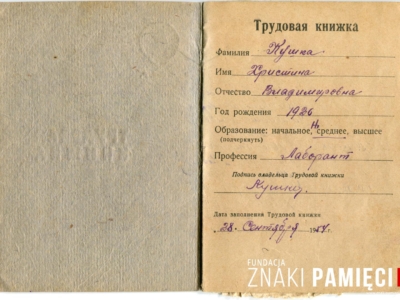 Трудовая книжка
Фамилия Кушка
Имя Христина
Отчество Владимировна
Год рождения 1926
Образование: начальное, среднее, высшее
(подчеркнуть)
Профессия Лаборант
Подпись владельца Трудовой книжки
Дата заполнения Трудовой книжки
28. Сентября
FUNDACJA
ZNAKI PAMIĘCI